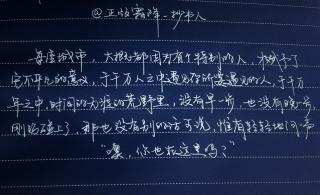 @正版霜降-抄书人
每座城市,大概都因为有个特别的人,才赋予了
它不平凡的意义,于千万人之中遇见你所要遇见的人,于千万
年之中,时间的无涯的荒野里,没有早一步,也没有晚一步,
刚巧碰上了,那也没有别的话可说,惟有轻轻地问一声
"噢,你也在这里吗?"